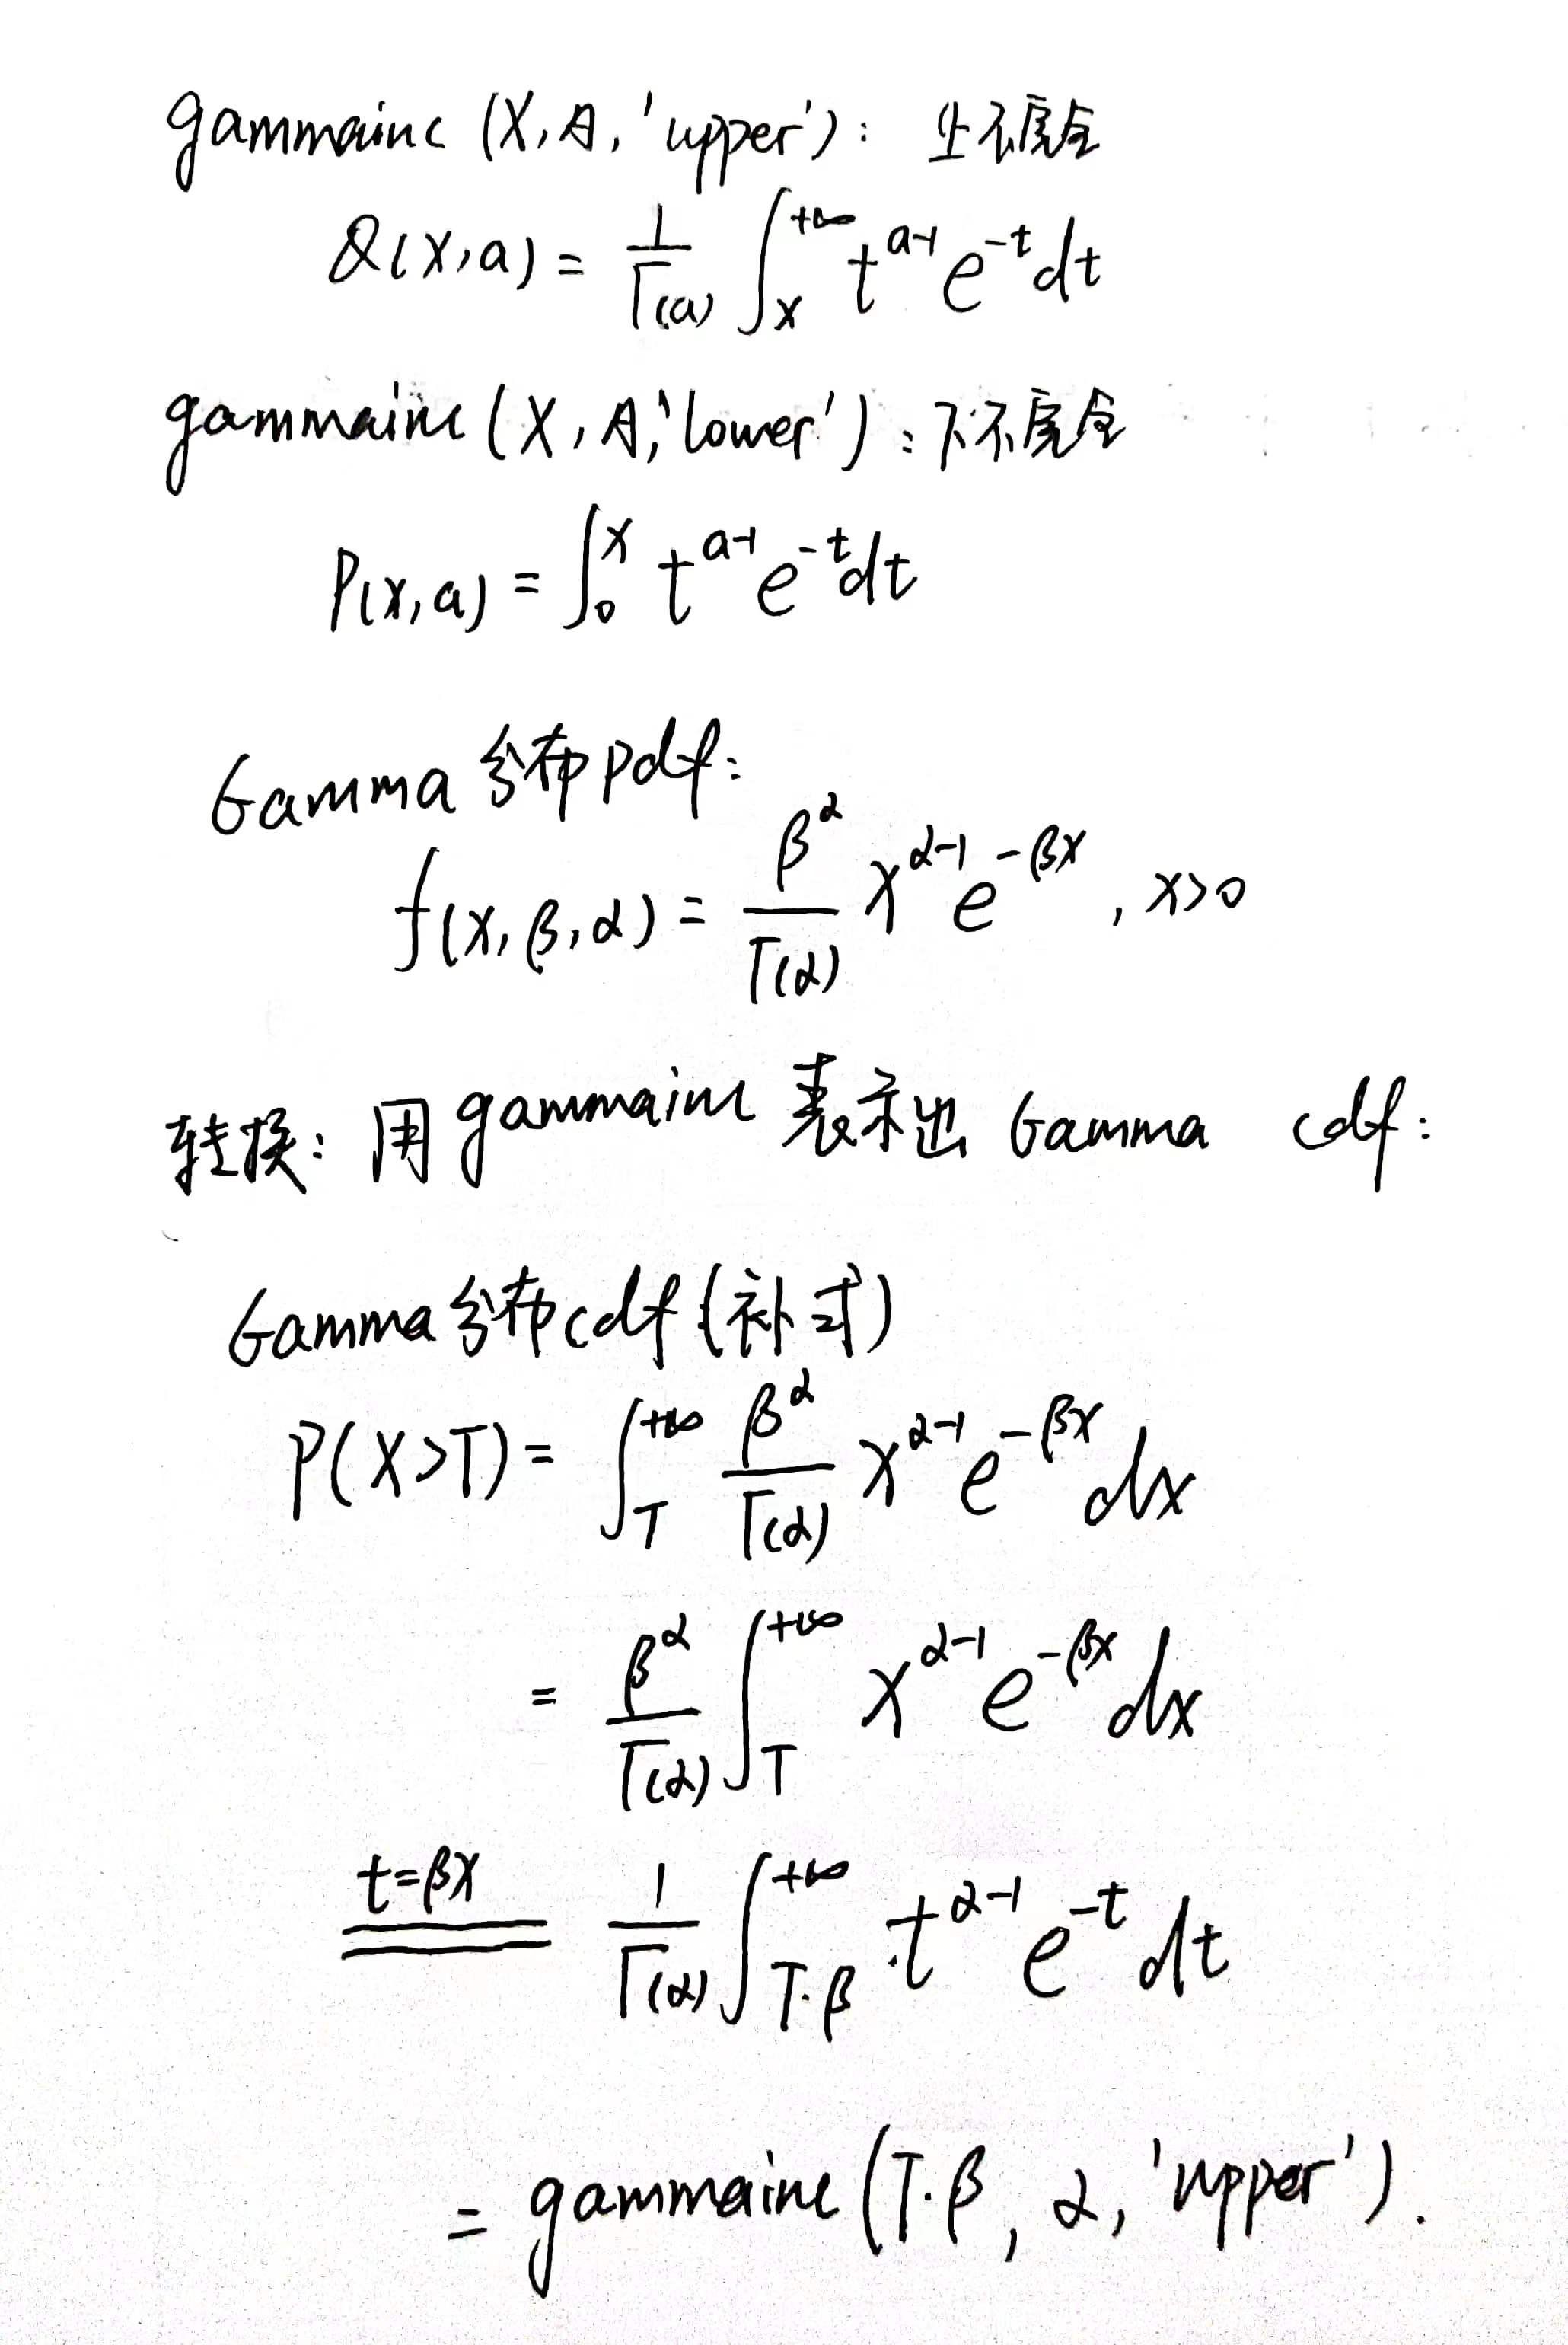 gammainc (X, A, 'upper'): 上不完全
Q(x,a) = \frac{1}{Γ(a)} \int_{x}^{+∞} t^{a-1} e^{-t} dt
gammainc (X, A, 'lower'): 下不完全
P(x,a) = \int_{0}^{x} t^{a-1} e^{-t} dt
Gamma 分布 pdf:
f(x, β, α) = \frac{β^α}{Γ(α)} x^{α-1} e^{-βx}, x>0
转换: 用 gammainc 表示出 Gamma cdf:
Gamma 分布 cdf (补式)
P(X>T) = \int_{T}^{+∞} \frac{β^α}{Γ(α)} x^{α-1} e^{-βx} dx
= \frac{β^α}{Γ(α)} \int_{T}^{+∞} x^{α-1} e^{-βx} dx
\overset{t=βx}{=} \frac{1}{Γ(α)} \int_{T·β}^{+∞} t^{α-1} e^{-t} dt
= gammainc (T·β, α, 'upper').